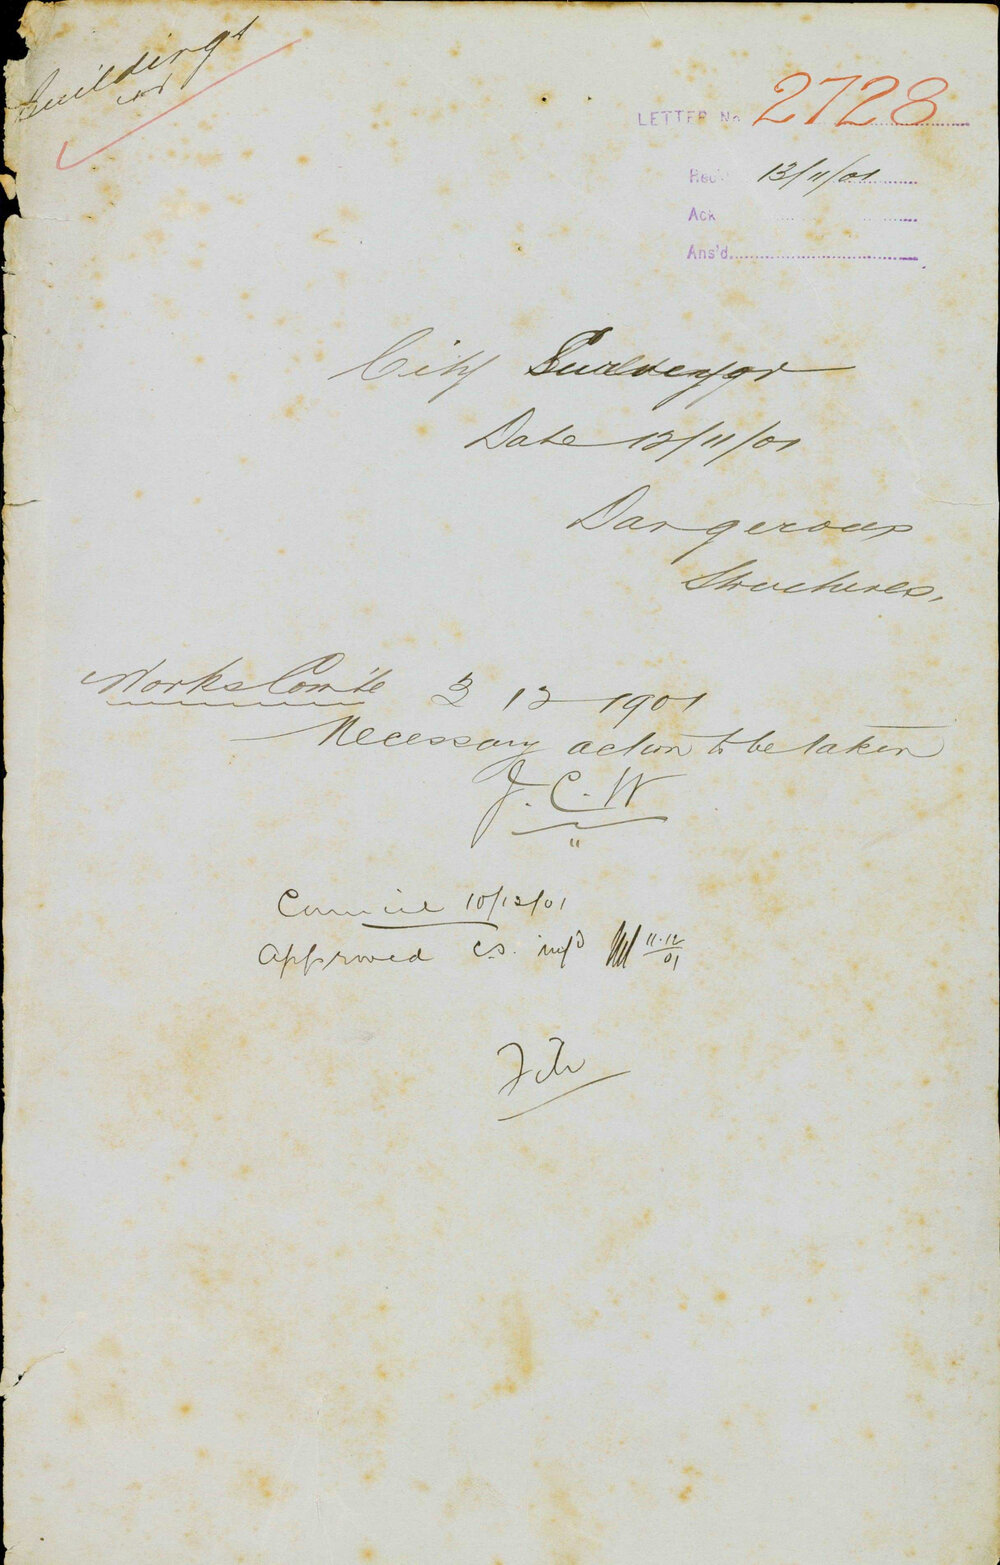 Buildings
LETTER No 2728
Rec'd 13/11/01
Ack
Ans'd
City Surveyor
Date 12/11/01
Dangerous
Structures.
Works Com'te 3 12 1901
Necessary action to be taken
J. C. W
Council 10/12/01
Approved C.S. inf'd 11.12/01
File